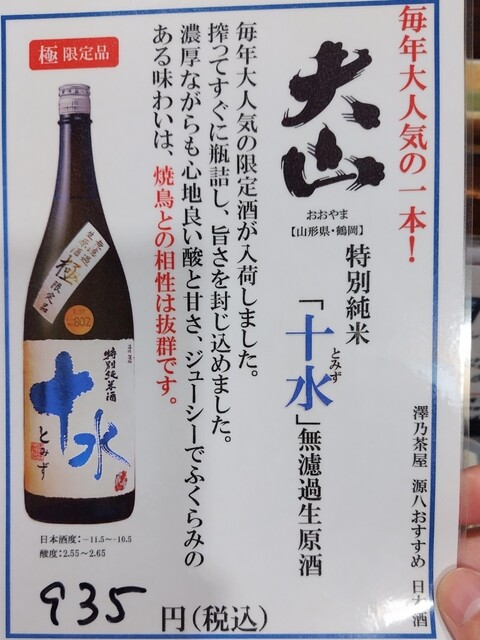 毎年大人気の一本！
澤乃茶屋 源八おすすめ 日本酒
大山
おおやま
【山形県・鶴岡】
特別純米
「十水」無濾過生原酒
とみず
毎年大人気の限定酒が入荷しました。
搾ってすぐに瓶詰し、旨さを封じ込めました。
濃厚ながらも心地良い酸と甘さ、ジューシーでふくらみの
ある味わいは、焼鳥との相性は抜群です。
極 限定品
無濾過
生原酒
極
限定品
802
特別純米酒
十水
とみず
日本酒度:−11.5〜−10.5
酸度:2.55〜2.65
935 円(税込)